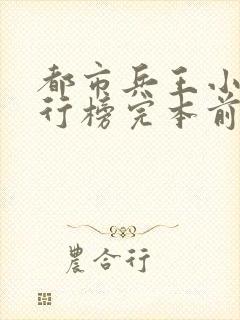 都市兵王小
行榜完本前
農合行